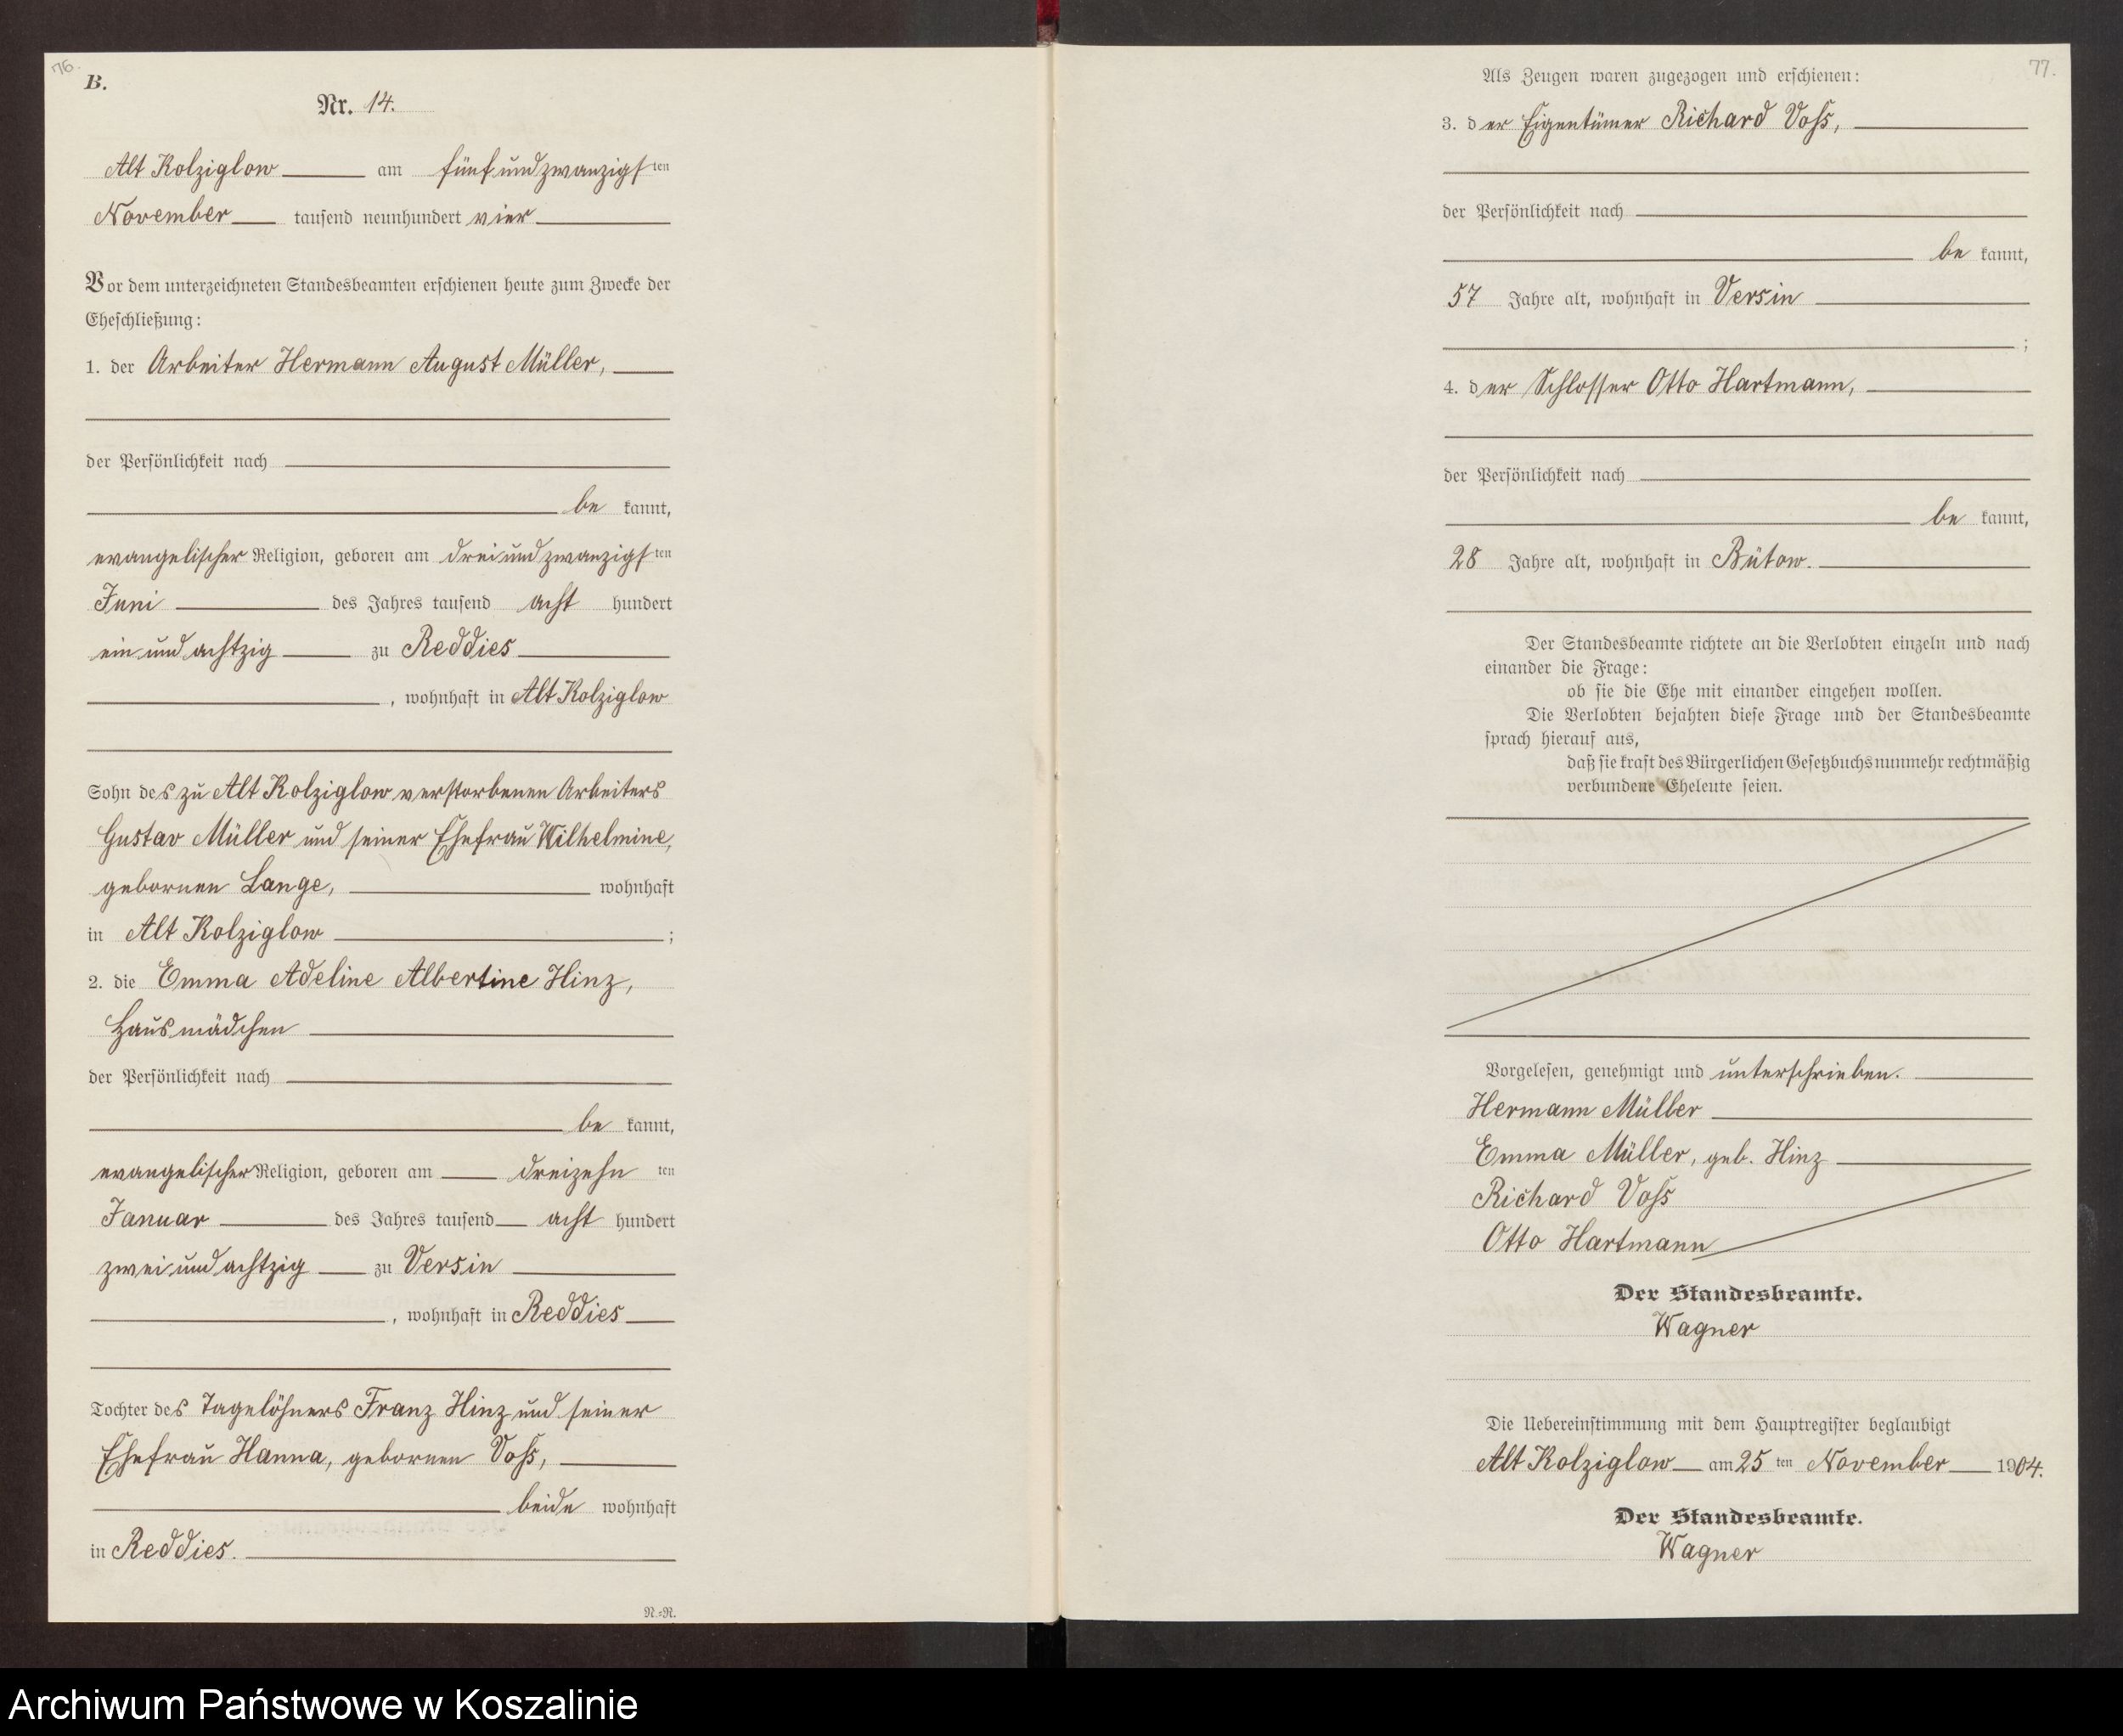 76.
B.
Nr. 14.
Alt Kolziglow am fünfundzwanzigsten
November tausend neunhundert vier
Vor dem unterzeichneten Standesbeamten erschienen heute zum Zwecke der
Eheschließung:
1. der Arbeiter Hermann August Müller,
der Persönlichkeit nach
be kannt,
evangelischer Religion, geboren am dreiundzwanzigsten
Juni des Jahres tausend acht hundert
einundachtzig zu Reddies
, wohnhaft in Alt Kolziglow
Sohn des zu Alt Kolziglow verstorbenen Arbeiters
Gustav Müller und seiner Ehefrau Wilhelmine,
gebornen Lange, wohnhaft
in Alt Kolziglow ;
2. die Emma Adeline Albertine Hinz,
Hausmädchen
der Persönlichkeit nach
be kannt,
evangelischer Religion, geboren am dreizehn ten
Januar des Jahres tausend acht hundert
zweiundachtzig zu Versin
, wohnhaft in Reddies
Tochter des Tagelöhners Franz Hinz und seiner
Ehefrau Hanna, gebornen Voß,
beide wohnhaft
in Reddies.
N.=N.
77.
Als Zeugen waren zugezogen und erschienen:
3. der Eigentümer Richard Voß,
der Persönlichkeit nach
be kannt,
57 Jahre alt, wohnhaft in Versin
;
4. der Schlosser Otto Hartmann,
der Persönlichkeit nach
be kannt,
28 Jahre alt, wohnhaft in Bütow.
Der Standesbeamte richtete an die Verlobten einzeln und nach
einander die Frage:
ob sie die Ehe mit einander eingehen wollen.
Die Verlobten bejahten diese Frage und der Standesbeamte
sprach hierauf aus,
daß sie kraft des Bürgerlichen Gesetzbuchs nunmehr rechtmäßig
verbundene Eheleute seien.
Vorgelesen, genehmigt und unterschrieben.
Hermann Müller
Emma Müller, geb. Hinz
Richard Voß
Otto Hartmann
Der Standesbeamte.
Wagner
Die Uebereinstimmung mit dem Hauptregister beglaubigt
Alt Kolziglow am 25 ten November 1904.
Der Standesbeamte.
Wagner
Archiwum Państwowe w Koszalinie